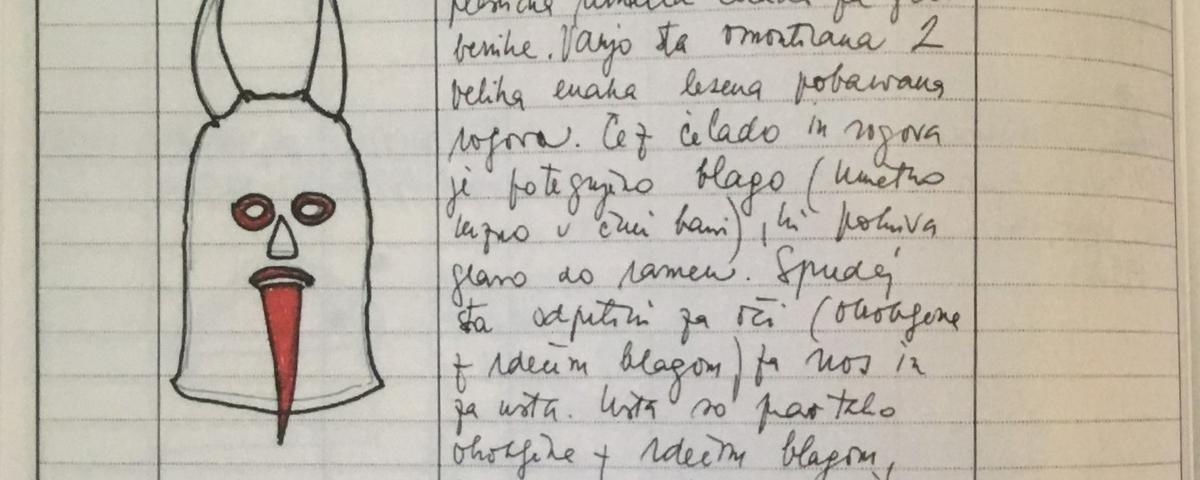 benihe. Vanjo sta vmontirana 2
velika enaka lesena pobarvana
rogova. Čez čelado in rogova
je potegnjeno blago (umetno
krzno v črni barvi), ki pokriva
glavo do ramen. Spredaj
sta odprtini za oči (obrobljene
z rdečim blagom) za nos in
za usta. Usta so prav tako
obrobljene z rdečim blagom,